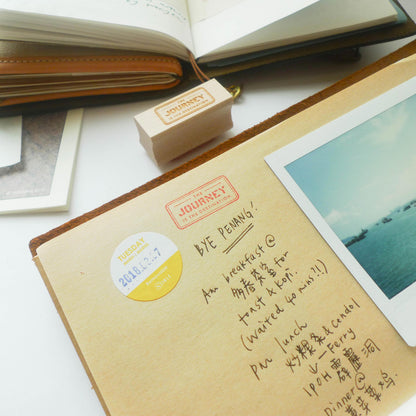 THE
JOURNEY
IS THE DESTINATION
THE
JOURNEY
IS THE DESTINATION
TUESDAY
BYE PENANG!
Am breakfast @
多春茶室 for
toast & kopi.
(Waited 40 mins?!)
pm lunch
炒粿条 & Cendol
↓ Ferry
IPOH 霹靂洞
Dinner @